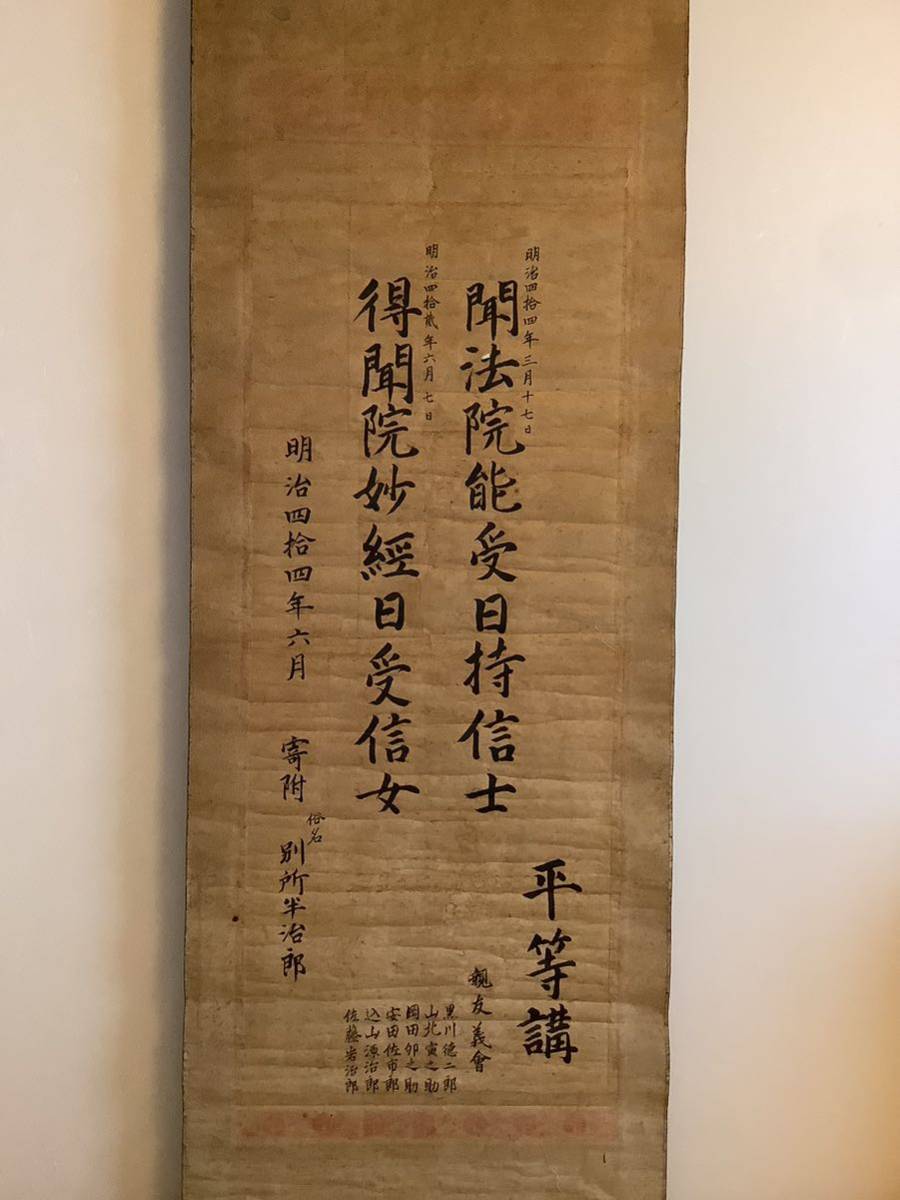 明治四拾四年三月十七日
聞法院能受日持信士
明治四拾貮年六月七日
得聞院妙經日受信女
明治四拾四年六月 寄附 俗名 別所半治郎
平等講
親友義會
黒川德二郎
山北寅之助
岡田卯之助
安田佐市郎
込山源治郎
佐藤岩治郎